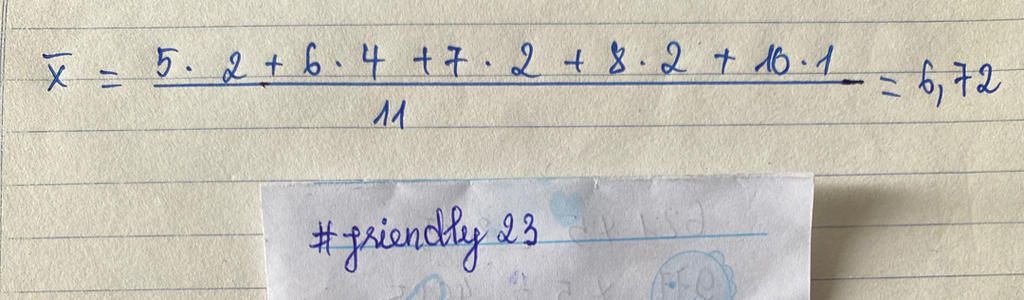 x̄ = 5 · 2 + 6 · 4 + 7 · 2 + 8 · 2 + 10 · 1 / 11 = 6,72
#friendly 23